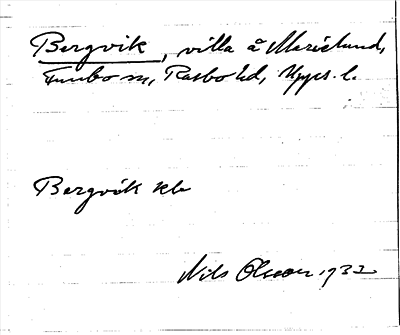 Bergvik, villa å Marielund,
Funbo sn, Rasbo hd, Upps. l.
Bergvik
Nils Olsson 1932